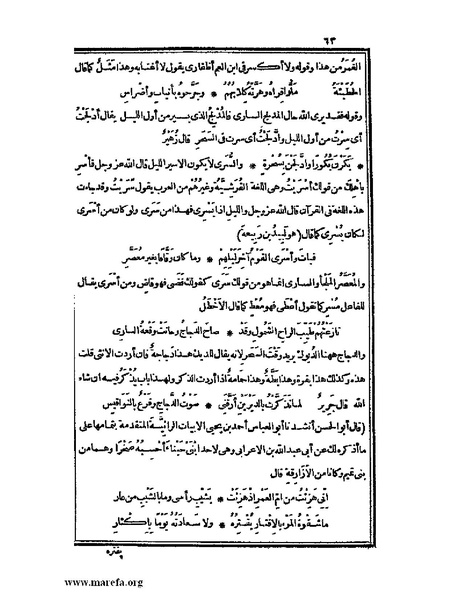 ٦٣
الغُمَرُ من هذا وقوله ولا أكسر في ابن العم أظفاري يقول لا أغتابه وهذا مَثَلٌ كما قال
الحُطَيْئَة مَلُّوا قِراهُ وهَرَّتْهُ كِلابُهُمُ * وجَرَّحوهُ بأنيابٍ وأضراسِ
وقوله قصديري الله حال المدلج الساري فالمُدْلِجُ الذي يسير من أول الليل يقال أدْلَجْتُ
أي سِرْتُ من أول الليل وادَّلَجْتُ أي سرت في السَّحَر قال زُهَيْرٌ
بَكَرْنَ بُكُورًا وادَّلَجْنَ بسُحْرَةٍ * والسُّرَى لا يكون الا سير الليل قال الله عز وجل فأسْرِ
بأهلِكَ من قولك أسْرَيْتُ وهي اللغة القُرَشِيَّةُ وغيرُهُم من العرب يقول سَرَيْتُ وقد جاءت
هذه اللغة في القرآن قال الله عز وجل والليلِ اذا يَسْرِي فهذا من سَرَى ولو كان من أسْرَى
لكان يُسْرِي كما قال (هو لَبِيدُ بن رَبيعة)
فباتَ وأسْرَى القومُ آخِرَ لَيْلِهِمْ * وما كان وَقَّافًا بغير مُعَصَّرِ
والمُعَصَّرُ المَلْجَأُ والساري انما هو من قولك سَرَى كقولك قَضَى فهو قاضٍ ومن أسْرَى يقال
للفاعل مُسْرٍ كما تقول أعْطَى فهو مُعْطٍ كما قال الأخْطَلُ
نازَعْتُهُمْ طَيِّبَ الراحِ الشَّمُولِ وقَدْ * صاحَ الدَّجاجُ وحانَتْ وَقْعَةُ الساري
والدجاج ههنا الدُّيوكُ يريد وقتَ السَّحَر لأنه يقال للديك هذا دَجاجةٌ فان أردت الأنثى قلت
هذه وكذلك هذا بقرة وهذا بَطَّةٌ وهذا حمامةٌ اذا أردت الذكر ولهذا باب يُذْكَرُ فيه ان شاء
الله قال جَرِيرٌ لما تَذَكَّرْتُ بالدَّيْرَيْنِ أرَّقَنِي * صوتُ الدَّجاجِ وقَرْعٌ بالنَّواقيسِ
(قال أبو الحسن أنشدنا أبو العباس أحمد بن يحيى الأبيات الرائيَّة المتقدمة بتمامها على
ما أذكره لك عن أبي عبد الله بن الاعرابي وهي لأحد ابْنَيْ حَبْناءَ أحْسِبُهُ صَخْرًا وهما من
بني تميم وكانا من الأزارقة قال
إنِّي هَزِئْتُ من امِّ الغَمْرِ اذْ هَزِئَتْ * بشَيْبِ رأسي وما بالشَّيْبِ من عارِ
ما شِقْوَةُ المَرْءِ بالإقْتارِ يُقْتِرُهُ * ولا سَعادَتُهُ يومًا بإكْثارِ
يقتره
www.marefa.org